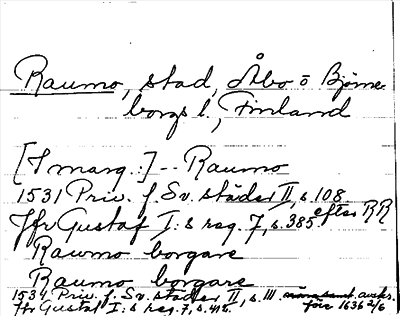 Raumo, stad, Åbo o Björne-
borgs l., Finland
[I marg.:] -- Raumo
1531 Priv. f. Sv. städer II, s. 108
efter RR
Jfr Gustaf I:s reg. 7, s. 385.
Rawmo borgare
Raumo borgare
1531 Priv. f. Sv. städer II, s. III
före 1636 2/6
Jfr Gustaf I:s reg. 7, s. 412.